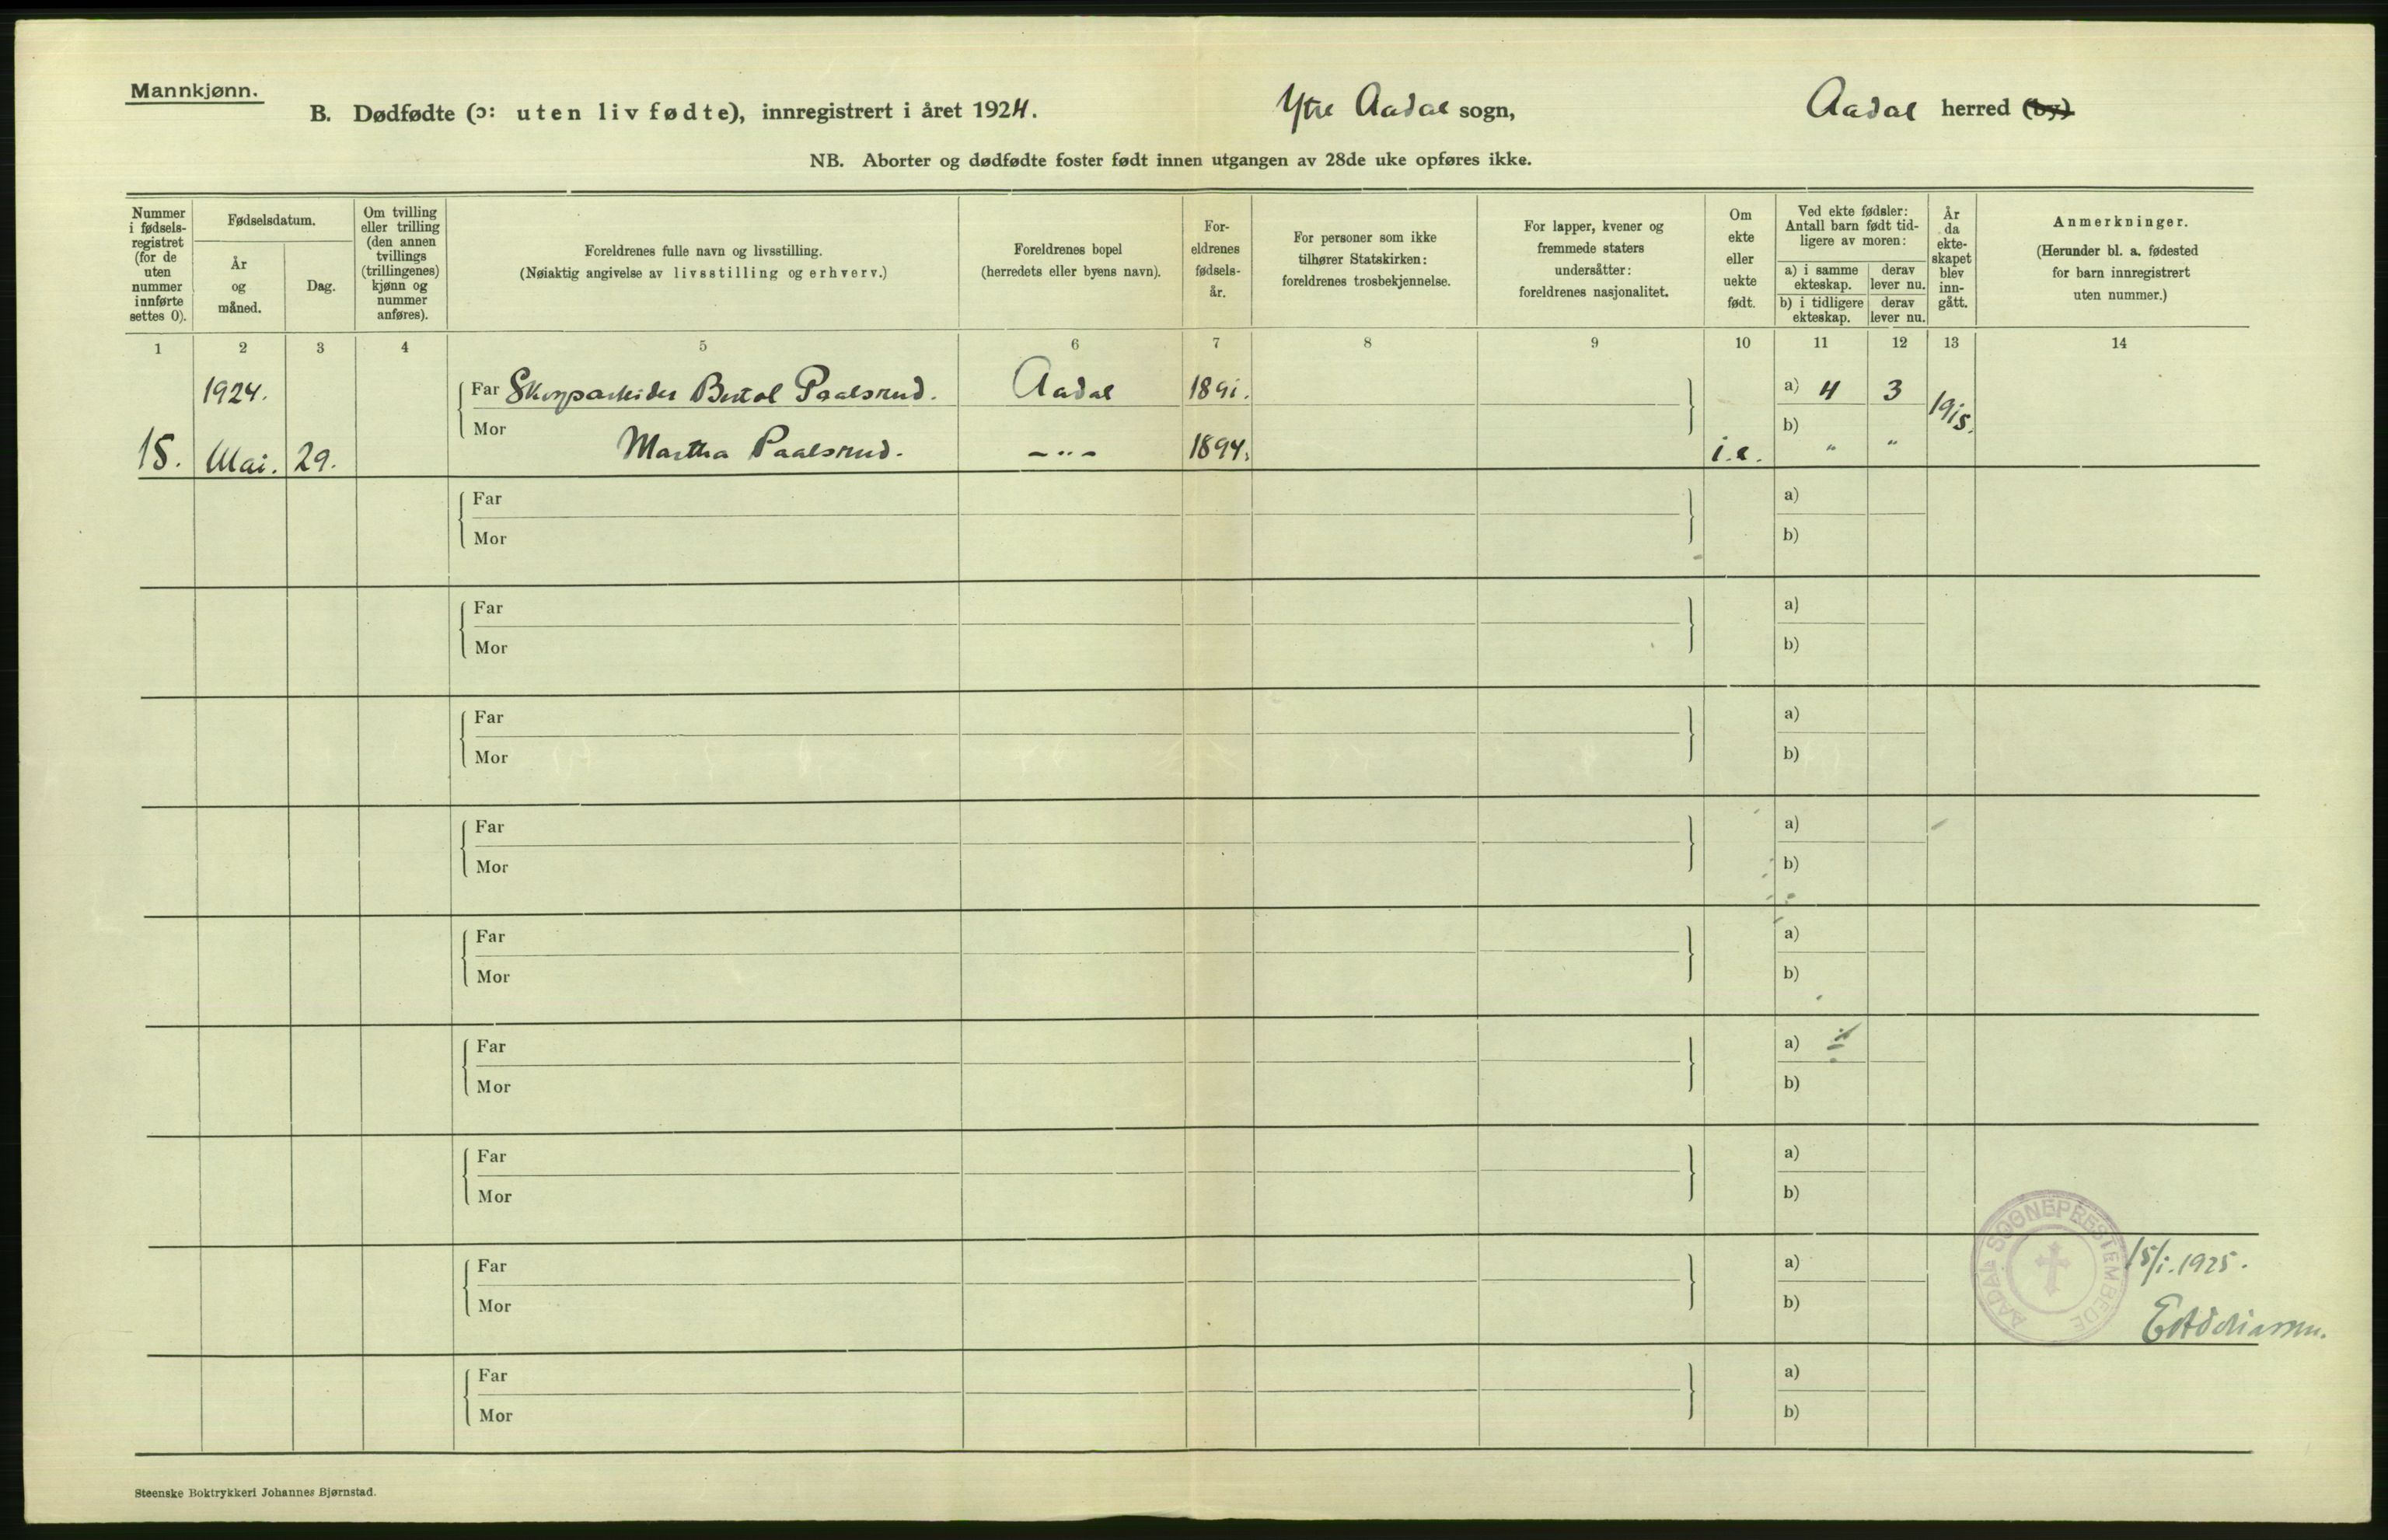 Mannkjønn.
B. Dødfødte (ɔ: uten liv fødte), innregistrert i året 1924. Ytre Aadal sogn, Aadal herred (by)
NB. Aborter og dødfødte foster født innen utgangen av 28de uke opføres ikke.
Nummer i fødsels-registret (for de uten nummer innførte settes 0).
Fødselsdatum.
År og måned.
Dag.
Om tvilling eller trilling (den annen tvillings (trillingenes) kjønn og nummer anføres).
Foreldrenes fulle navn og livsstilling.
(Nøiaktig angivelse av livsstilling og erhverv.)
Foreldrenes bopel
(herredets eller byens navn).
For-eldrenes fødsels-år.
For personer som ikke tilhører Statskirken: foreldrenes trosbekjennelse.
For lapper, kvener og fremmede staters undersåtter: foreldrenes nasjonalitet.
Om ekte eller uekte født.
Ved ekte fødsler: Antall barn født tid-ligere av moren:
a) i samme ekteskap. derav lever nu.
b) i tidligere ekteskap. derav lever nu.
År da ekte-skapet blev inn-gått.
Anmerkninger.
(Herunder bl. a. fødested for barn innregistrert uten nummer.)
1 2 3 4 5 6 7 8 9 10 11 12 13 14
1924. Far Bertol Paalsrud. Aadal 1891. a) 4 3 1915.
15. Mai. 29. Mor Martha Paalsrud. -"- 1894. i.e. b) " "
Far a)
Mor b)
Far a)
Mor b)
Far a)
Mor b)
Far a)
Mor b)
Far a)
Mor b)
Far a)
Mor b)
Far a)
Mor b)
Far a)
Mor b)
Far a)
Mor b)
AADAL SOGNEPRESTEMBEDE
15/1.1925.
Steenske Boktrykkeri Johannes Bjørnstad.